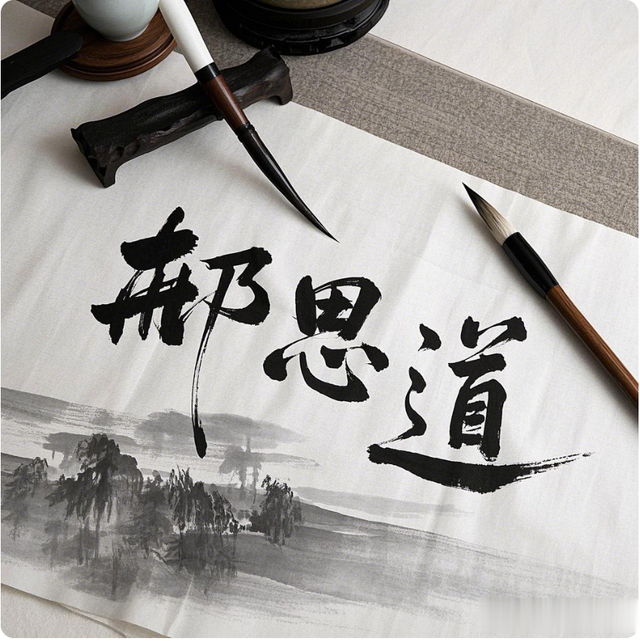 郝思道